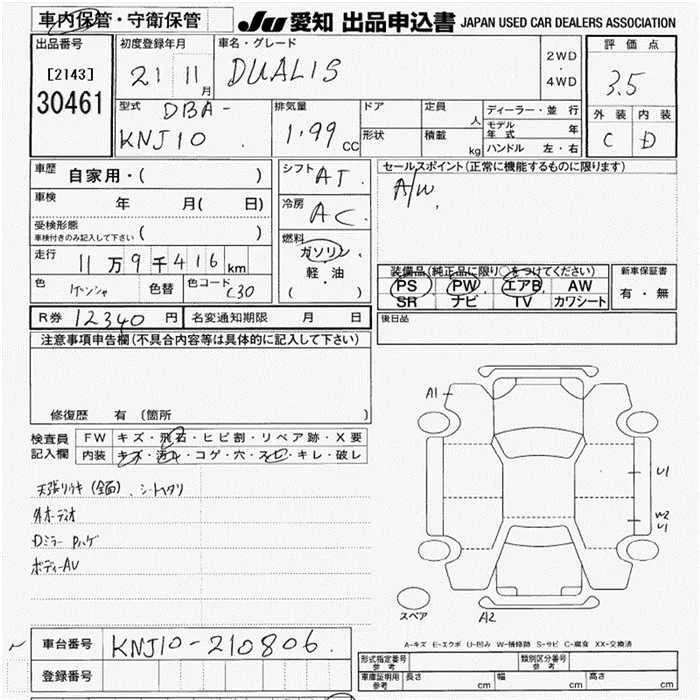 車内保管・守衛保管
JU 愛知 出品申込書 JAPAN USED CAR DEALERS ASSOCIATION
出品番号
[2143]
30461
初度登録年月
21 11 月
車名・グレード
DUALIS
2WD
・
4WD
評価点
3.5
外装 内装
C D
型式 DBA-
KNJ10
排気量
1.99 cc
ドア
形状
定員 人
積載 kg
ディーラー・並行
モデル年式 年
ハンドル 左・右
車歴 自家用・( )
車検 年 月( 日)
受検形態
車検付きのみ記入して下さい ( )
走行 11万9千416km
色 色替 色コード
C30
シフト AT
冷房 AC
燃料
ガソリン
軽・油
( )
セールスポイント(正常に機能するものに限ります)
A/W
装備品(純正品に限り○をつけてください)
PS PW エアB AW
SR ナビ TV カワシート
新車保証書
有・無
R券 12340 円 名変通知期限 月 日
後日品
注意事項申告欄(不具合内容等は具体的に記入して下さい)
修復歴 有(箇所 )
検査員記入欄
FW キズ・飛石・ヒビ割・リペア跡・X要
内装 キズ・汚れ・コゲ・穴・スレ・キレ・破レ
外オーディオ
Dミラー Pハゲ
ボディーAU
A1
U1
W2
U1
スペア
A2
A-キズ E-エクボ U-凹み W-補修跡 S-サビ C-腐食 XX-交換済
車台番号 KNJ10-210806
登録番号
型式指定番号
参考
類別区分番号
参考
車庫証明用
参考
長さ cm 幅 cm 高さ cm